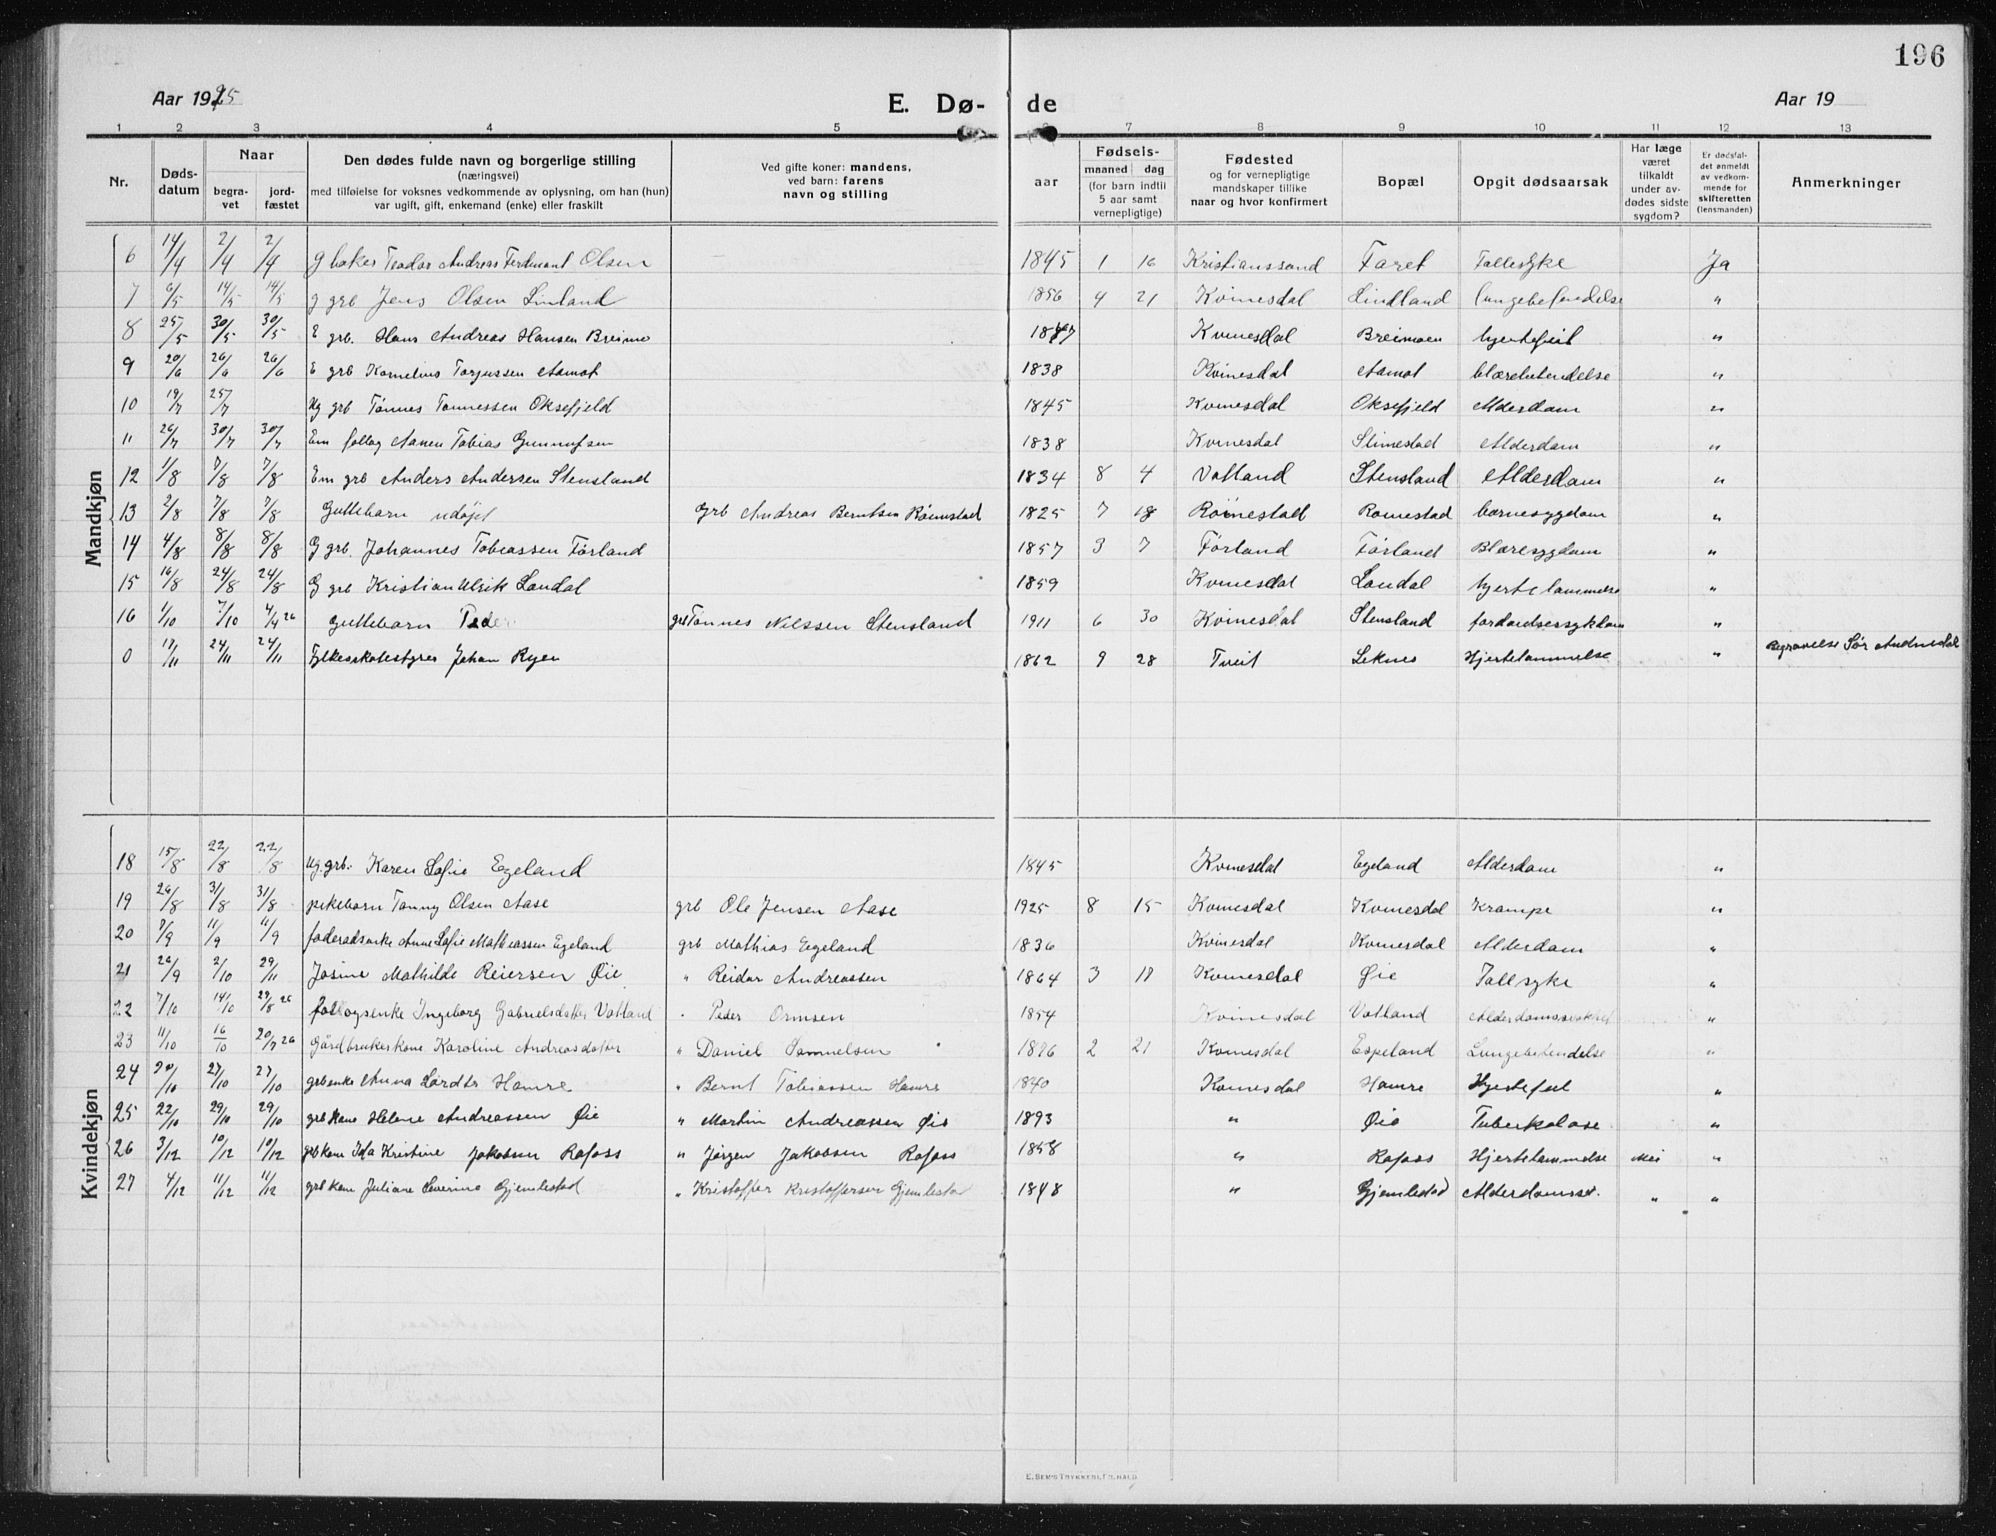 196
Aar 1925 E. Dø- de Aar 19
1 2 3 4 5 6 7 8 9 10 11 12 13
Nr. Døds-datum Naar begra-vet jord-fæstet Den dødes fulde navn og borgerlige stilling (næringsvei) med tilføielse for voksnes vedkommende av oplysning, om han (hun) var ugift, gift, enkemand (enke) eller fraskilt Ved gifte koner: mandens, ved barn: farens navn og stilling aar Fødsels- maaned dag (for barn indtil 5 aar samt vernepligtige) Fødested og for vernepligtige mandskaper tillike naar og hvor konfirmert Bopæl Opgit dødsaarsak Har læge været tilkaldt under av-dødes sidste sygdom? Er dødsfal-det anmeldt av vedkom-mende for skifteretten (lensmanden) Anmerkninger
Mandkjøn
6 14/4 2/4 2/4 g baker Teodor Andreas Ferdinant Olsen 1845 1 16 Kristianssand Faret Fallesyke Ja
7 6/5 14/5 14/5 g grb Jens Olsen Linland 1856 4 21 Kvinesdal Lindland lungebetendelse "
8 25/5 30/5 30/5 E grb. Hans Andreas Hansen Breimo Kvinesdal Breimoen hjertefeil "
9 20/6 26/6 26/6 E grb Kornelius Torjussen Aamot 1838 Kvinesdal Aamot blærebetendelse "
10 19/7 25/7 Ug grb Tønnes Tønnessen Oksefjeld 1845 Kvinesdal Oksefjeld Alderdam "
11 26/7 30/7 30/7 Em follog Aanen Tobias Gunnufsen 1838 Kvinesdal Slimestad Alderdam "
12 1/8 7/8 7/8 Em grb Anders Andersen Stensland 1834 8 4 Vatland Stensland Alderdam "
13 2/8 7/8 7/8 Guttebarn udøpt Grb Andreas Berntsen Römestad 1825 7 18 Römestad Romestad barnesygdam "
14 4/8 8/8 8/8 G grb. Johannes Tobiassen Förland 1857 3 7 Förland Förland Blæresygdam "
15 16/8 24/8 24/8 G grb Kristian Ulrik Landal 1859 Kvinesdal Landal hjertelammelse "
16 1/10 7/10 4/4 26 Guttebarn Peder grb Tønnes Nilssen Stensland 1911 6 30 Kvinesdal Stensland "
0 17/11 24/11 24/11 Fylkesskolestyrer Johan Ryen 1862 9 28 Tveit Leknes Hjertelammelse " Begravelse Sør Audnedal
Kvindekjøn
18 15/8 22/8 22/8 Ug. grb: Karen Sofie Egeland 1845 Kvinesdal Egeland Alderdam "
19 26/8 31/8 31/8 pikebarn Tonny Olsen Aase grb Ole Jensen Aase 1925 8 15 Kvinesdal Kvinesdal Krampe "
20 7/9 11/9 11/9 føderadsenke Anne Sofie Mathiassen Egeland grb Mathias Egeland 1836 Kvinesdal Kvinesdal Alderdam "
21 26/9 2/10 29/11 Josine Mathilde Reiersen Øie " Reidar Andreassen 1864 3 18 Kvinesdal Øie Fallsyke "
22 7/10 14/10 29/8 26 follogsenke Ingeborg Gabrielsdatter Vatland " Peder Ormsen 1854 Kvinesdal Vatland Alderdomssvakhet "
23 11/10 16/10 20/7 26 Gårdbrukerkone Karoline Andreasdatter " Daniel Samuelsen " 1896 2 21 Kvinesdal Espeland Lungebetendelse "
24 20/10 27/10 27/10 grb enke Anna Hamre " Bernt Tobiassen Hamre 1840 Kvinesdal Hamre Hjertefeil "
25 22/10 29/10 29/10 grb kone Helene Andreassen Øie " Martin Andreassen Øie 1893 " Øie Tuberkolose "
26 3/12 10/12 10/12 grb kone Ida Kristine Jakobsen Rafoss " Jörgen Jakobsen Rafoss 1858 " Rafoss Hjertelammelse Nei "
27 4/12 11/12 11/12 grb kone Juliane Severine Gjemlestad " Kristoffer Kristoffersen Gjemlestad 1848 " Gjemlestad Alderdomssv. " "
E. SEM'S TRYKKERI, FR.HALD